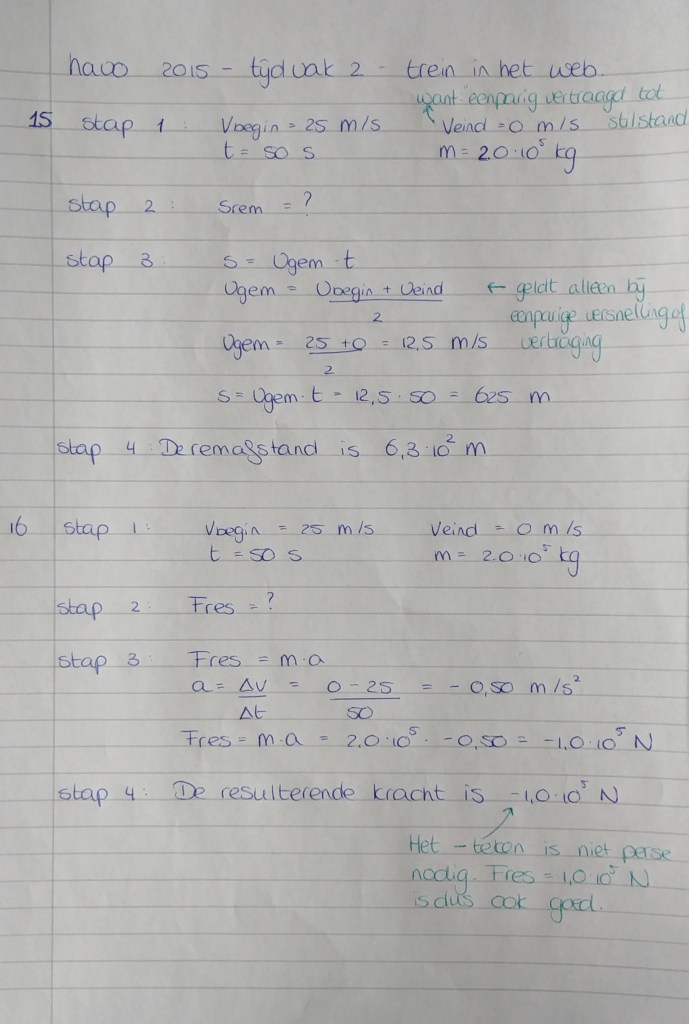 havo 2015 - tijdvak 2 - trein in het web.
want eenparig vertraagd tot stilstand
15 stap 1: Vbegin = 25 m/s Veind = 0 m/s
t = 50 s m = 2.0·10⁵ kg
stap 2: Srem = ?
stap 3: s = Vgem · t
Vgem = Vbegin + Veind / 2 ← geldt alleen bij
eenparige versnelling of
Vgem = 25 + 0 / 2 = 12,5 m/s vertraging
s = Vgem · t = 12,5 · 50 = 625 m
stap 4: De remafstand is 6,3·10² m
16 stap 1: Vbegin = 25 m/s Veind = 0 m/s
t = 50 s m = 2.0·10⁵ kg
stap 2: Fres = ?
stap 3: Fres = m·a
a = Δv / Δt = 0 - 25 / 50 = - 0,50 m/s²
Fres = m·a = 2,0·10⁵ · -0,50 = -1,0·10⁵ N
stap 4: De resulterende kracht is -1,0·10⁵ N
Het - teken is niet perse
nodig. Fres = 1,0·10⁵ N
is dus ook goed.